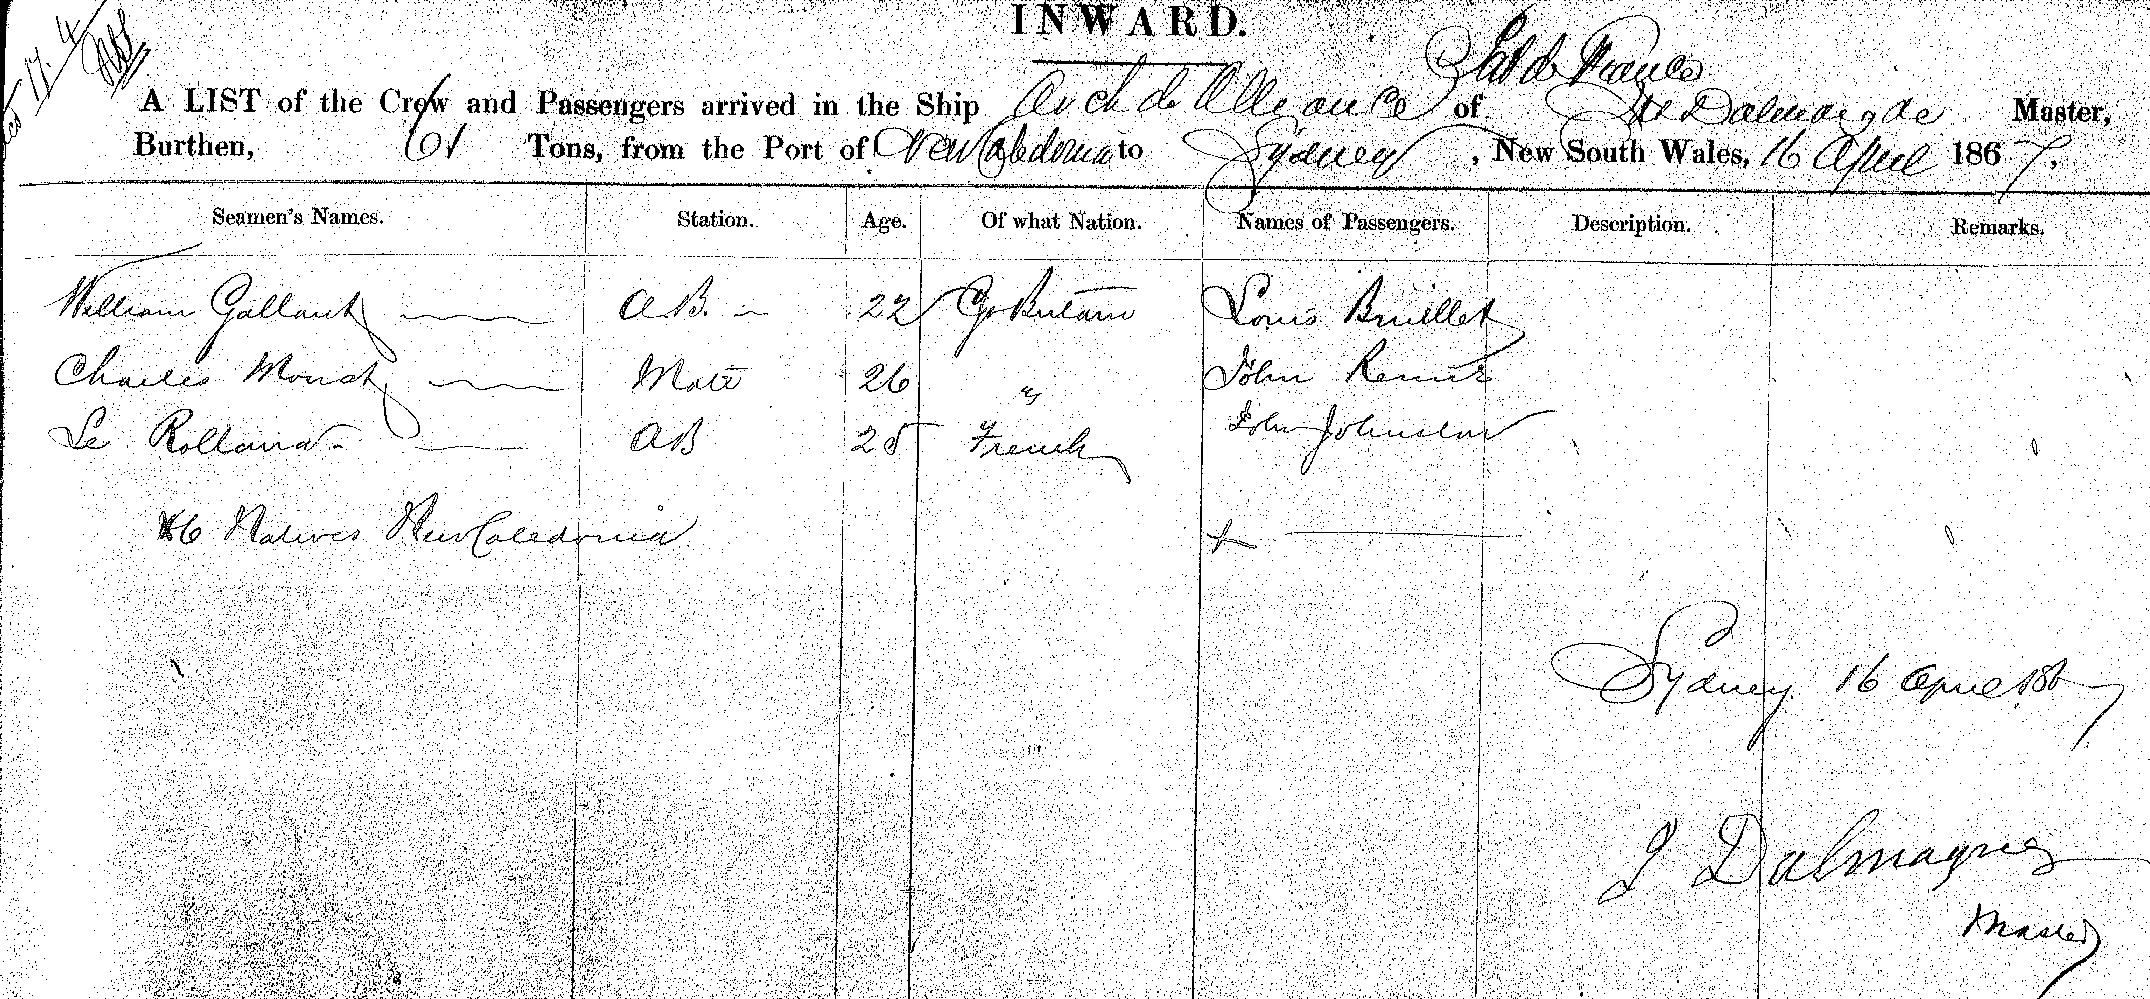 INWARD.
A LIST of the Crew and Passengers arrived in the Ship Arch de Alliance of Master,
Burthen, 61 Tons, from the Port of New Caledonia to Sydney, New South Wales, 16 April 1867.
Seamen's Names. Station. Age. Of what Nation. Names of Passengers. Description. Remarks.
William Gallant AB. 22 Gt Britain Louis
Charles Mate 26 " John
Le Rolland AB 25 French John Johnston
6 Natives New Caledonia
Sydney 16 April 1867
Dalmagne
Master